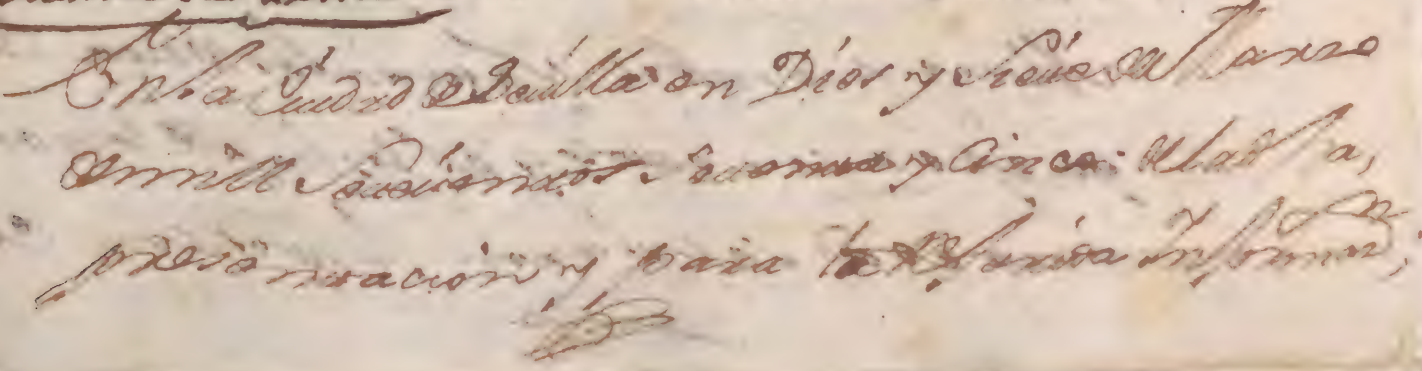 En la Ciudad de Sevilla en Dies y Siete de Marzo
de mill Setecientos Setenta y Cinco: de la dha,
presentacion y para la referida Informon,